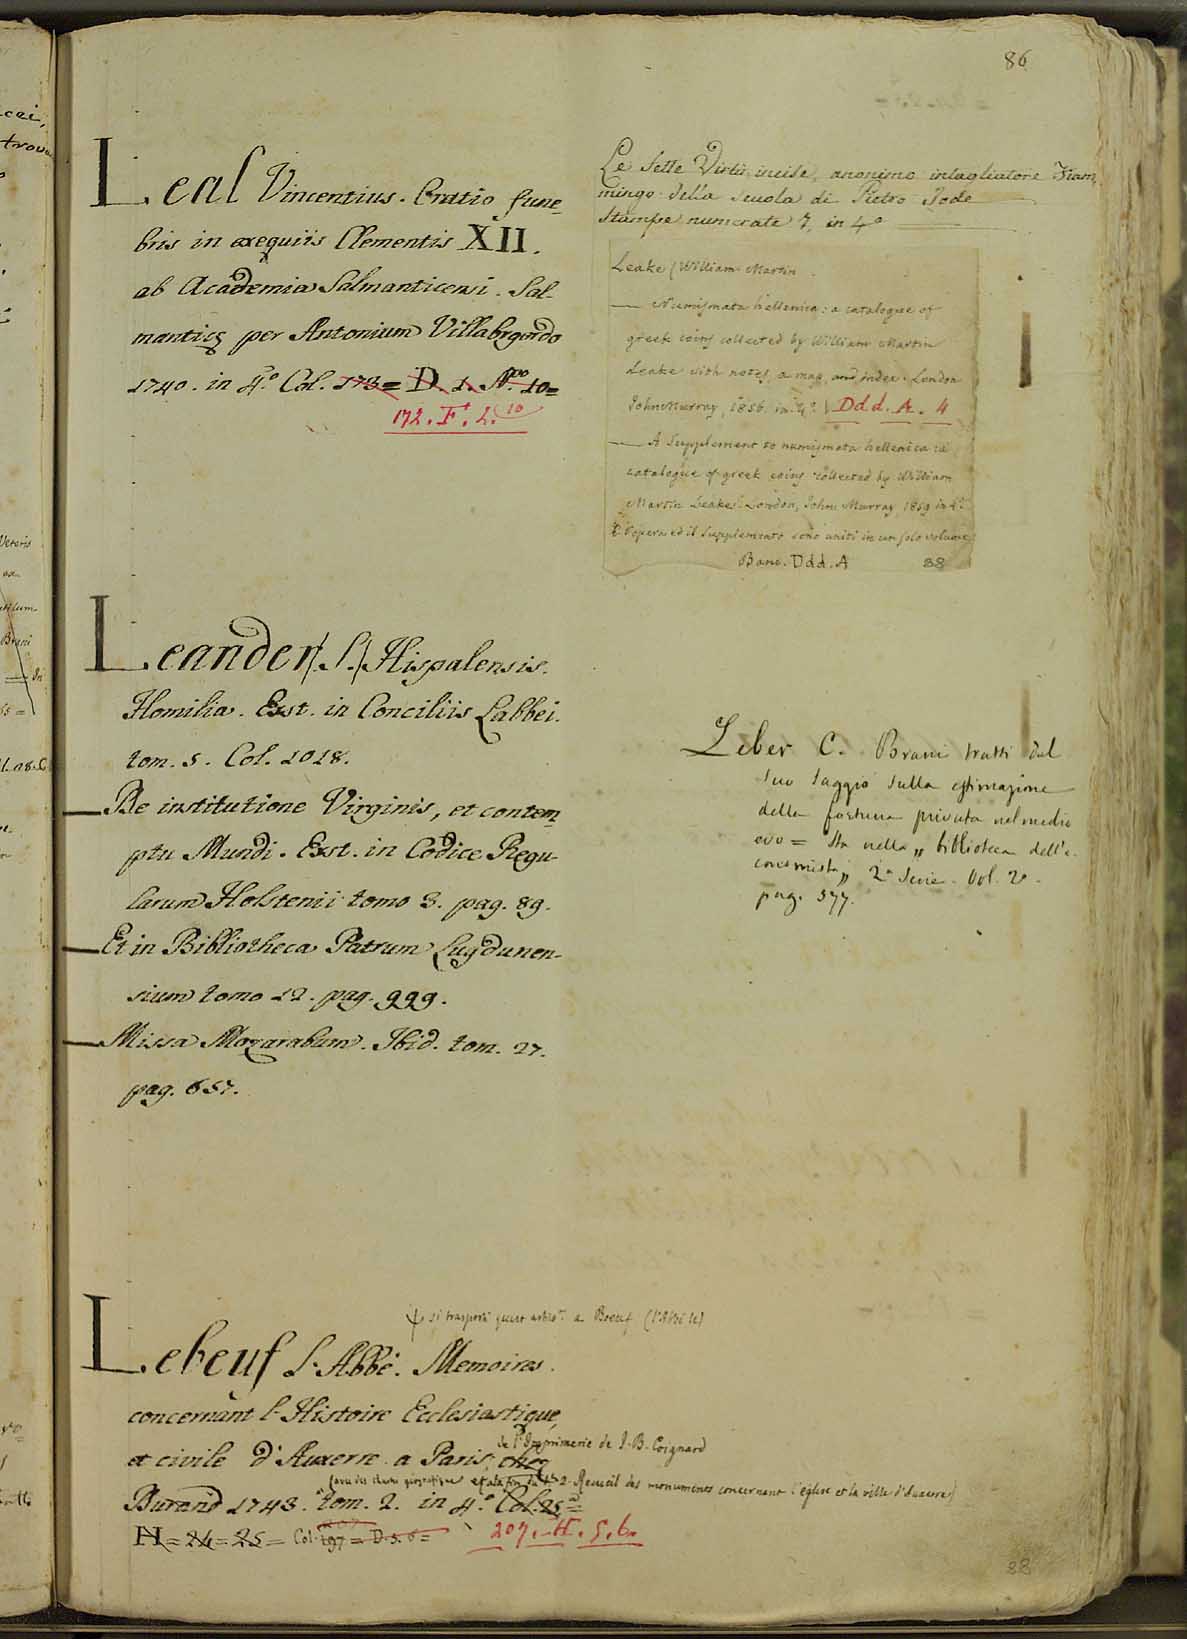 86
Leal Vincentius. Oratio fune=
bris in exequiis Clementis XII.
ab Academia Salmanticensi. Sal-
manticę per Antonium Villabrgordo
1740. in 4.º Col. 173= D. 1. N.ro 10=
172. F. 2. 10
Leander (S.) Hispalensis.
Homilia. Exst. in Conciliis Labbei.
tom. 5. Col. 1018.
— De institutione Virginis, et contem=
ptu Mundi. Exst. in Codice Regu-
larum Holstenii tomo 3. pag. 89.
— Et in Bibliotheca Patrum Lugdunen-
sium tomo 12. pag. 999.
— Missa Mozarabum. Ibid. tom. 27.
pag. 657.
si trasporti a Boeuf (l'Abbé le)
Lebeuf L'Abbé. Memoires
concernant l'Histoire Ecclesiastique,
et civile d'Auxerre a Paris, chez
de l'Imprimerie de J. B. Coignard
et alla fin du t. 2. Recueil des monuments concernant l'église et la ville d'Auxerre)
Durand 1743. tom. 2. in 4.º Col. 25=
N= 24= 25= Col. 197= D. 5. 6=
207. H. 5. 6.
Le Sette Virtù incise, anonimo intagliatore Fiam,
mingo della scuola di Pietro Jode
Stampe numerate 7, in 4º
Leake (William-Martin
— Numismata hellenica: a catalogue of
greek coins collected by William Martin
Leake with notes, a map, and index. London
John Murray, 1856. in 4º. Ddd. A. 4
— A Supplement to numismata hellenica: a
catalogue of greek coins collected by William
Martin Leake. London, John Murray, 1859 in 4º
L'opera ed il supplemento sono uniti in un solo volume
Banc. Ddd. A 38
Liber C. Brani tratti dal
suo saggio sulla estimazione
della fortuna privata nel medio
evo = Sta nella „ biblioteca dell'e-
conomista „ 2ª Serie. Vol. 2º.
pag. 577.
88